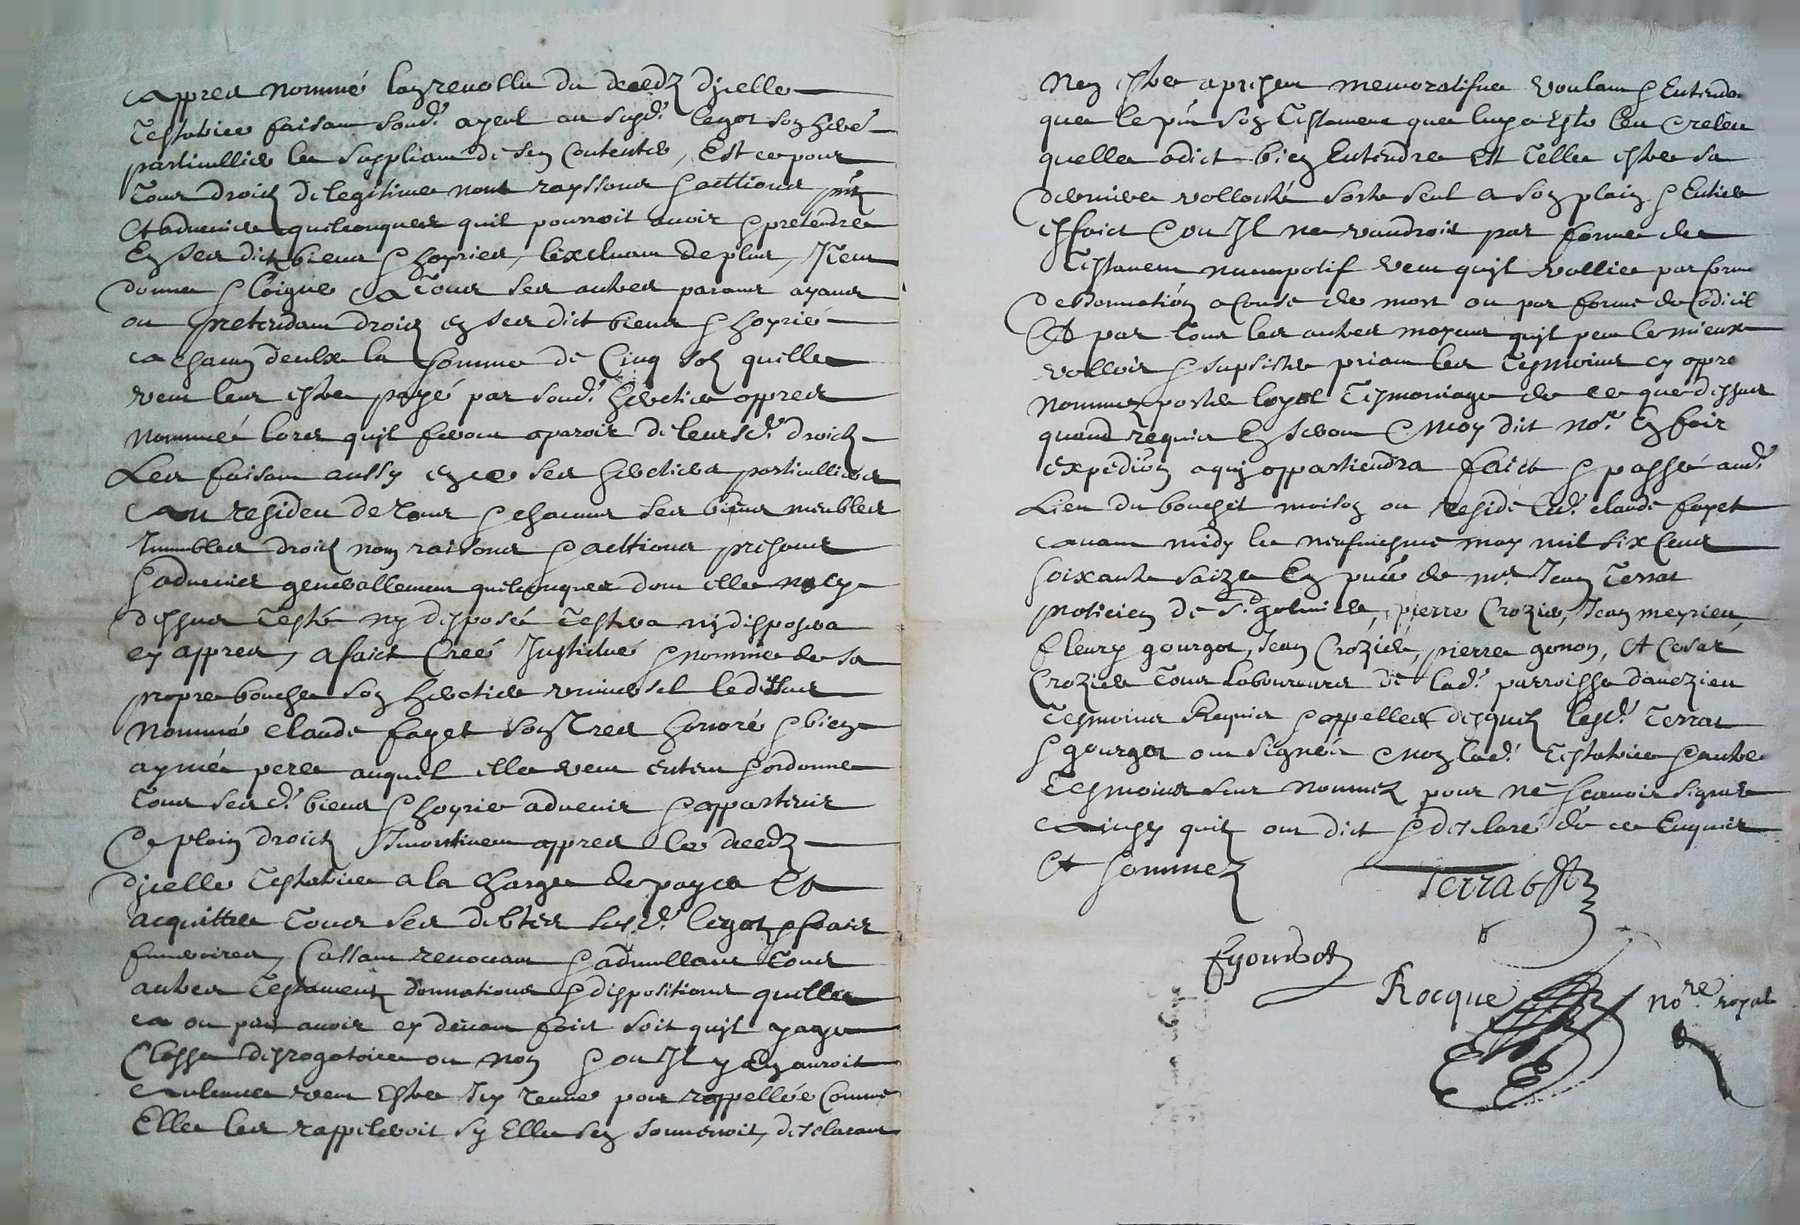 appres nommé lan revollu du deceds djcelle
Testatrice faisam sond.t ayeul au susd.t legat son heri-
particullier le suppliam de sen Contenter, Est ce pour
Tous droictz de legitime noms rayssons & acttions pntz
Et advenir quelconques quil pourroit avoir & pretendre
En ses dictz biens & hoyrie, lexcluam de plus, Item
donne & loigue a Tous ses autres parans ayans
ou pretendam droictz en ses dict biens & hoyrie
a chacun deulx la somme de Cinq solz quelle
veut leur estre payé par sond.t heretier appres
nommé lors qujl feroin aparoir de leursd.t droictz
Les faisam aussy en ce ses heretiers particulliers
Au resideu de tous & chacuns ses biens meubles
Immubles droictz noms raisons & acttions presans
& advenir generallement quelconques dom elle na cy
dessus Testé ny disposé Testera ny disposera
cy appres, a faict Creé Institué & nommé de sa
propre bouche son heretier universel ledissus
nommé claude fayet son Tres honoré & bien
aymé pere auquel elle veut entem & ordonne
Tous sesd.t biens & hoyrie advenir & appartenir
De plain droictz Incontinem appres le deceds
djcelle Testatrice a la charge de payer Et
acquitter Tous ses debtes susd.t legatz & frais
funeraires, Cassam revocam & adnullam Tous
autres Testamentz donnations & dispositions quelle
a ou peu avoir cy devam faict soit qujl y aye
Closse desrogatoire ou non & ou Jl y En auroit
Aulcune veut Estre Icy tenue pour rappellée Comme
Elle les rappeleroit sy Elle sen souvenoit, desclaram
Ney estre a presem memoratifve voulam & Entendam
que le pnt son Testament que luy a Esté leu & releu
quelle a dict bien Entendre Est Telle estre sa
derniere vollonté sorte seul a son plain & Entier
effaict & ou Jl ne vaudroit par forme de
Testamem nuncupatif veut qujl vallie par forme
De donnation a Cause de mort ou par forme de Codicil
Et par Tous les autres moyens qujl peu le mieux
valloir & supsister priam les Tesmoins cy appre
nommez porter loyal Tesmoniage de ce que dessus
quand requis En seront & moy dict no.re En fair
expedion a quj appartiendra faict & passé aud.t
Lieu du bouchet maison ou reside led.t claude fayet
avam midy le neufviesme may mil six Cens
soixante saize En pnce de m.r Jean Terrat
praticien de S.t galmier, pierre Crozier, Jean meyrieu,
fleury gourgot, Jean Crozier, pierre gonon, Et Cesar
Crozier Tous Laboureurs de lad.t parroisse daveizieu
Tesmoins Requis & appelles desquelz lesd.t Terrat
& gourgot om signés & non lad.t Testatrice & autre
Tesmoins sus nommez pour ne scavoir signer
ainsy quilz om dict & desclaré de ce Enquis
Et sommez
Terrat
Rocque no.re royal